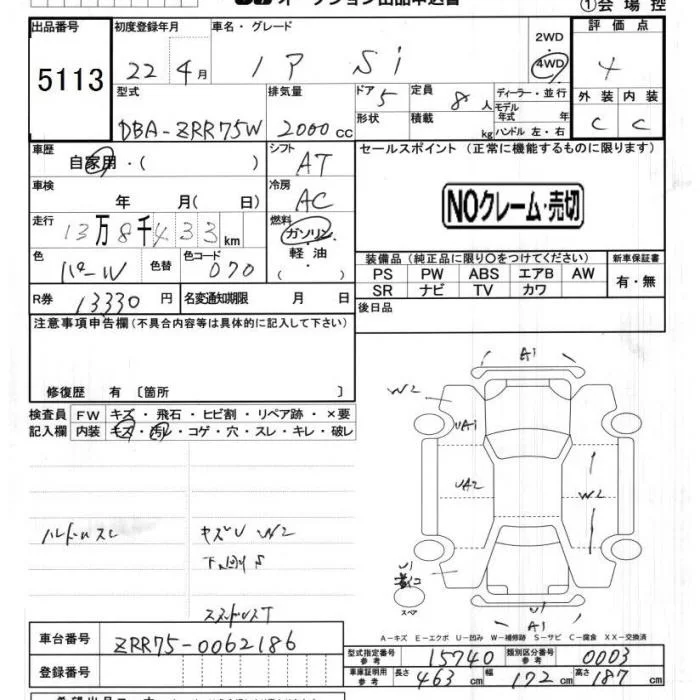 ①会場控
出品番号
5113
初度登録年月
22 4月
車名・グレード
Si
2WD
4WD
評価点
4
外装 内装
C C
型式
DBA-ZRR75W
排気量
2000cc
ドア 5
定員 8人
形状
積載 kg
ディーラー・並行
モデル年式 年
ハンドル 左・右
車歴
自家用・( )
シフト
AT
セールスポイント (正常に機能するものに限ります)
NOクレーム・売切
車検
年 月( 日)
冷房
AC
走行
13万8千433km
燃料
ガソリン
軽・油
( ・ )
色
パールW
色替
色コード
070
装備品 (純正品に限り○をつけてください)
PS PW ABS エアB AW
SR ナビ TV カワ
新車保証書
有・無
R券 13330円
名変通知期限 月 日
後日品
注意事項申告欄(不具合内容等は具体的に記入して下さい)
修復歴 有 〔箇所 〕
検査員記入欄
FW キズ・飛石・ヒビ割・リペア跡・×要
内装 キズ・汚レ・コゲ・穴・スレ・キレ・破レ
A1
W2
UA1
UA2
W2
U1
スペア
A1
ハンドルスレ
キズU W2
A-キズ E-エクボ U-凹み W-補修跡 S-サビ C-腐食 XX-交換済
車台番号
ZRR75-0062186
登録番号
型式指定番号 参考
15740
類別区分番号 参考
0003
車庫証明用 参考
長さ 463cm 幅 172cm 高さ 187cm